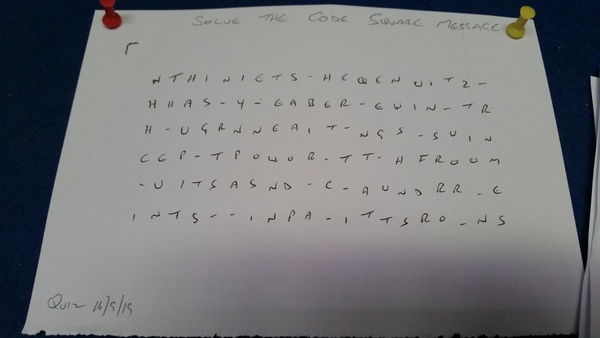 SOLVE THE CODE SQUARE MESSAGE
NTHINIETS-HEQENUITZ-
HHAS-Y-EABER-EUIN-TR
H-UGRNNEAIT-NGS-SUIN
CEP-TPOWOR-TT-HFROUM
-UITSASND-C-AUNDRR-E
INTS--INPA-ITTSRO-NS
QUIZ 16/9/19